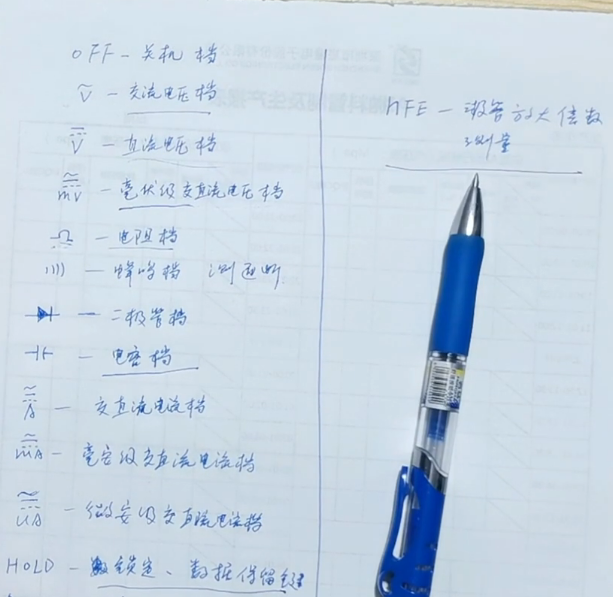 OFF — 关机档
Ṽ — 交流电压档
V — 直流电压档
mV — 毫伏级交直流电压档
Ω — 电阻档
)))) — 蜂鸣档 测通断
— 二极管档
⊣⊢ — 电容档
A — 交直流电流档
mA — 毫安级交直流电流档
uA — 微安级交直流电流档
HOLD — 数锁定、数据保留键
hFE — 三极管放大倍数
测量